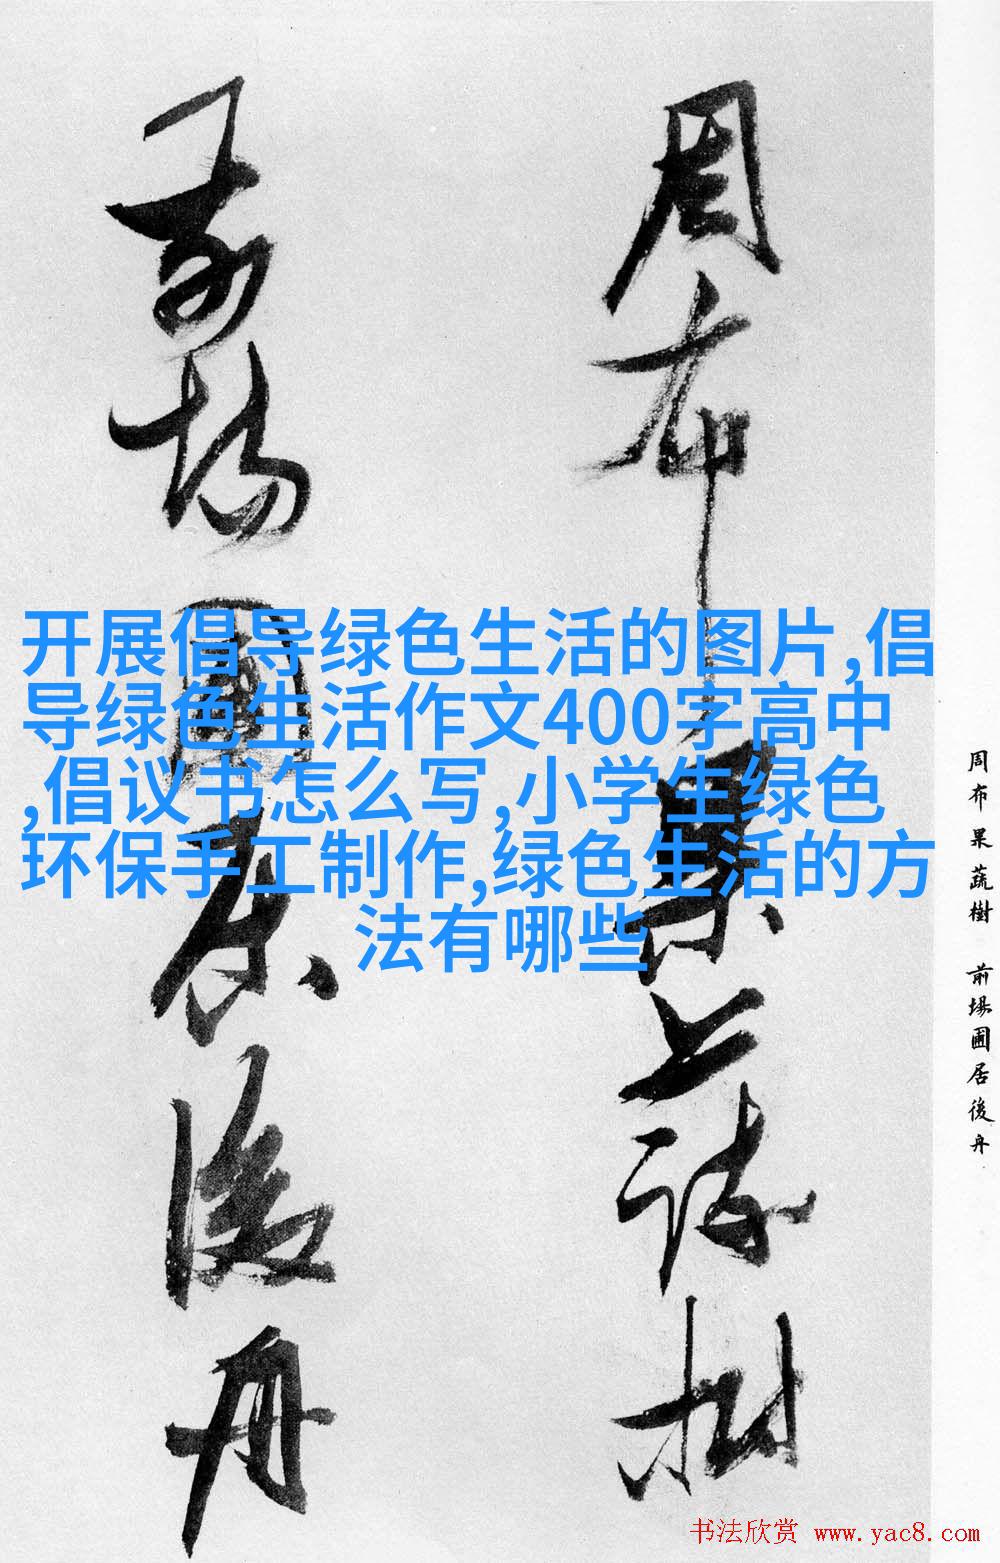 开展倡导绿色生活的图片,倡
导绿色生活作文400字高中
,倡议书怎么写,小学生绿色
环保手工制作,绿色生活的方
法有哪些
周布果蔬樹
前場圃居後舟
周布果蔬樹 前場圃居後舟
书法欣赏 www.yac8.com